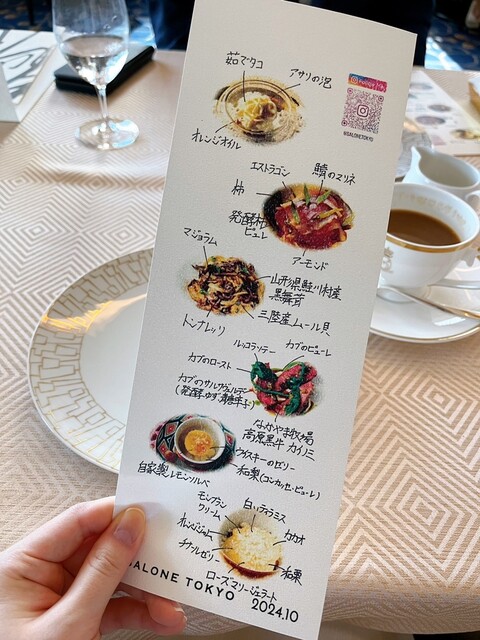 茹でタコ
アサリの泡
オレンジオイル
@SALONETOKYO
エストラゴン
鯖のマリネ
柿
発酵柿
ピューレ
アーモンド
マジョラム
山形県鮭川村産
黒舞茸
三陸産ムール貝
トンナレッリ
ルッコラソテー
カブのピューレ
カブのロースト
カブのサルサヴェルデ
(発酵ゆず青唐辛子)
なかやま牧場
高原黒牛 カイノミ
ウイスキーのゼリー
和梨(コンカッセ・ピューレ)
自家製レモンソルベ
モンブラン
クリーム
白いティラミス
オレンジジャム
カカオ
チナールゼリー
和栗
ローズマリージェラート
SALONE TOKYO 2024.10